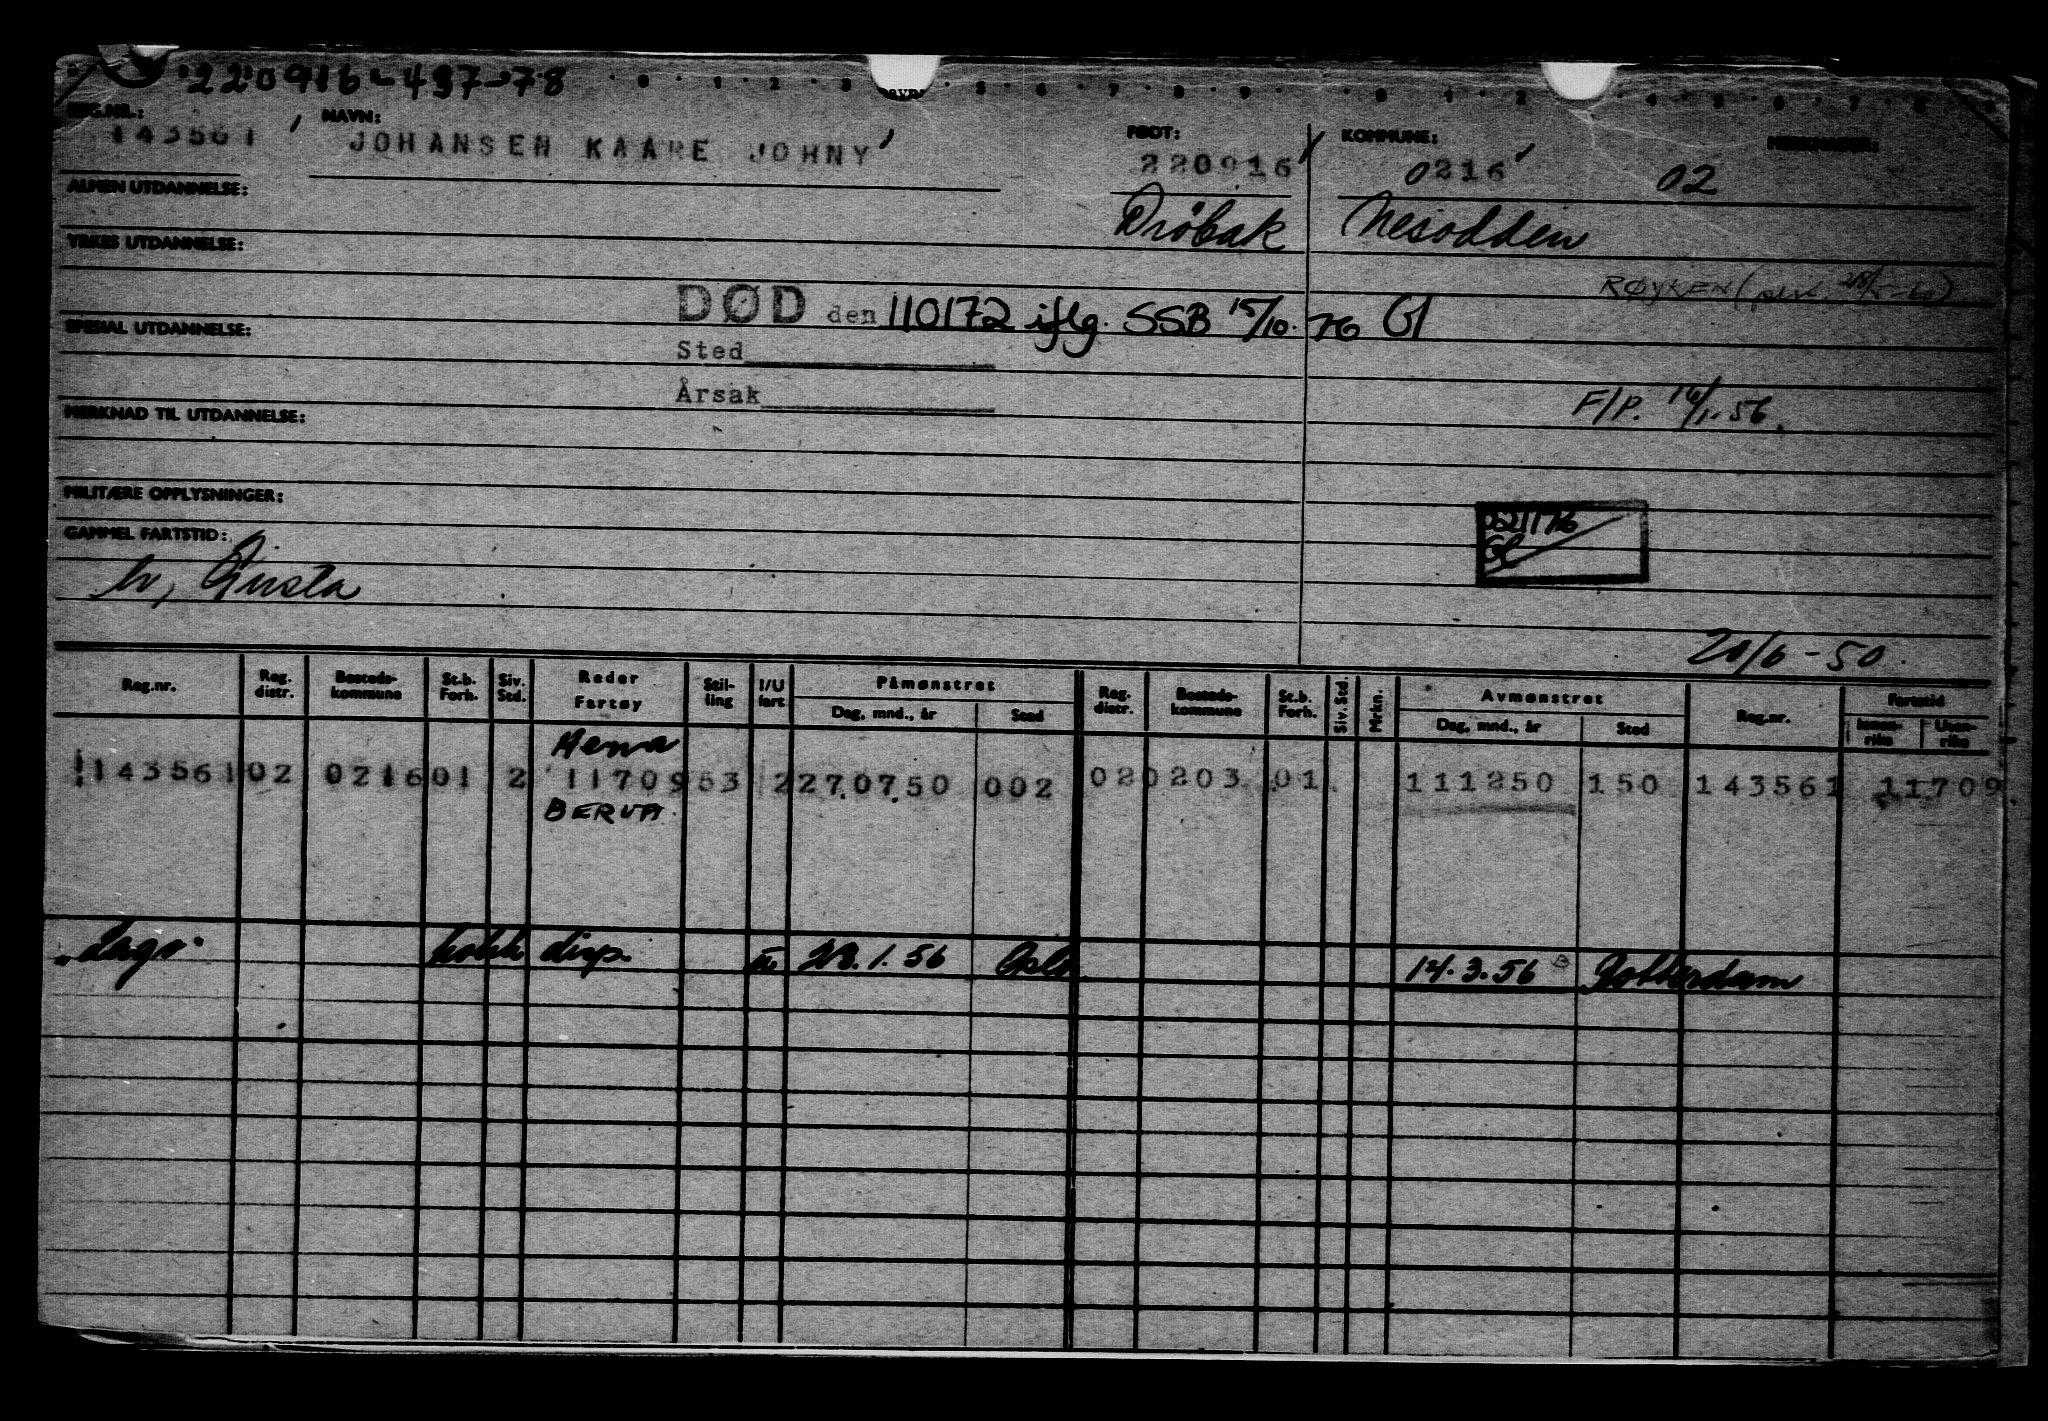 220916-497-78
REG.NR.: NAVN: FØDT: KOMMUNE: MERKNADER:
143561 JOHANSEN KAARE JOHNY 220916 0216 02
ALMEN UTDANNELSE: Drøbak Nesodden
YRKES UTDANNELSE:
RØYKEN
DØD den 110172 iflg. SSB 15/10.76 Gl
SPESIAL UTDANNELSE:
Sted
Årsak F/P. 16/1.56.
MERKNAD TIL UTDANNELSE:
MILITÆRE OPPLYSNINGER:
GAMMEL FARTSTID:
20/6-50.
Reg.nr. Reg. distr. Bosteds-kommune St.b. Forh. Siv. Std. Reder Fartøy Stil-ling I/U fart Påmønstret Dag, mnd., år Sted Reg. distr. Bosteds-kommune St.b. Forh. Siv. Std. Mrkn. Avmønstret Dag, mnd., år Sted Reg.nr. Fartstid Innen-riks Uten-riks
143561 02 0216 01 2 11709 53 2 270750 002 02 0203 01 111250 150 143561 11709
BERVA
kokk disp. 28.1.56 Oslo 14.3.56 Rotterdam